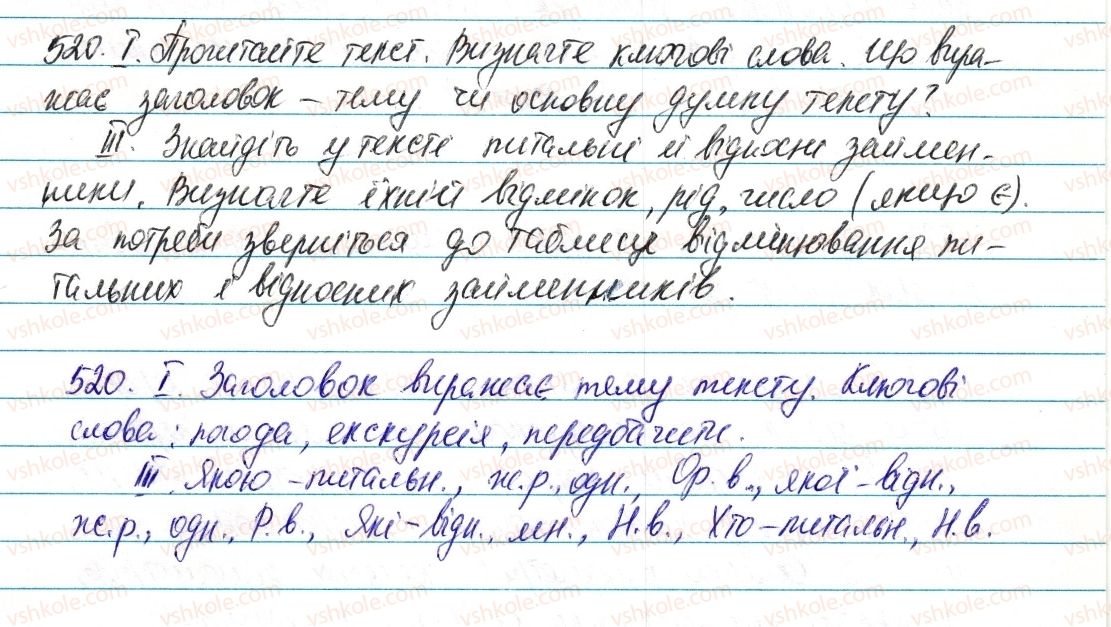 520. І. Прочитайте текст. Визначте ключові слова. Що вира-
жає заголовок – тему чи основну думку тексту?
ІІІ. Знайдіть у тексті питальні й відносні займен-
ники. Визначте їхній відмінок, рід, число (якщо є).
За потреби зверніться до таблиці відмінювання пи-
тальних і відносних займенників.
520. І. Заголовок виражає тему тексту. Ключові
слова: погода, екскурсія, передбачити.
ІІІ. Якою – питальн., ж.р., одн., Ор. в., якої – відн.,
ж.р., одн., Р.в., Які – відн., мн., Н.в., Хто – питальн., Н.в.